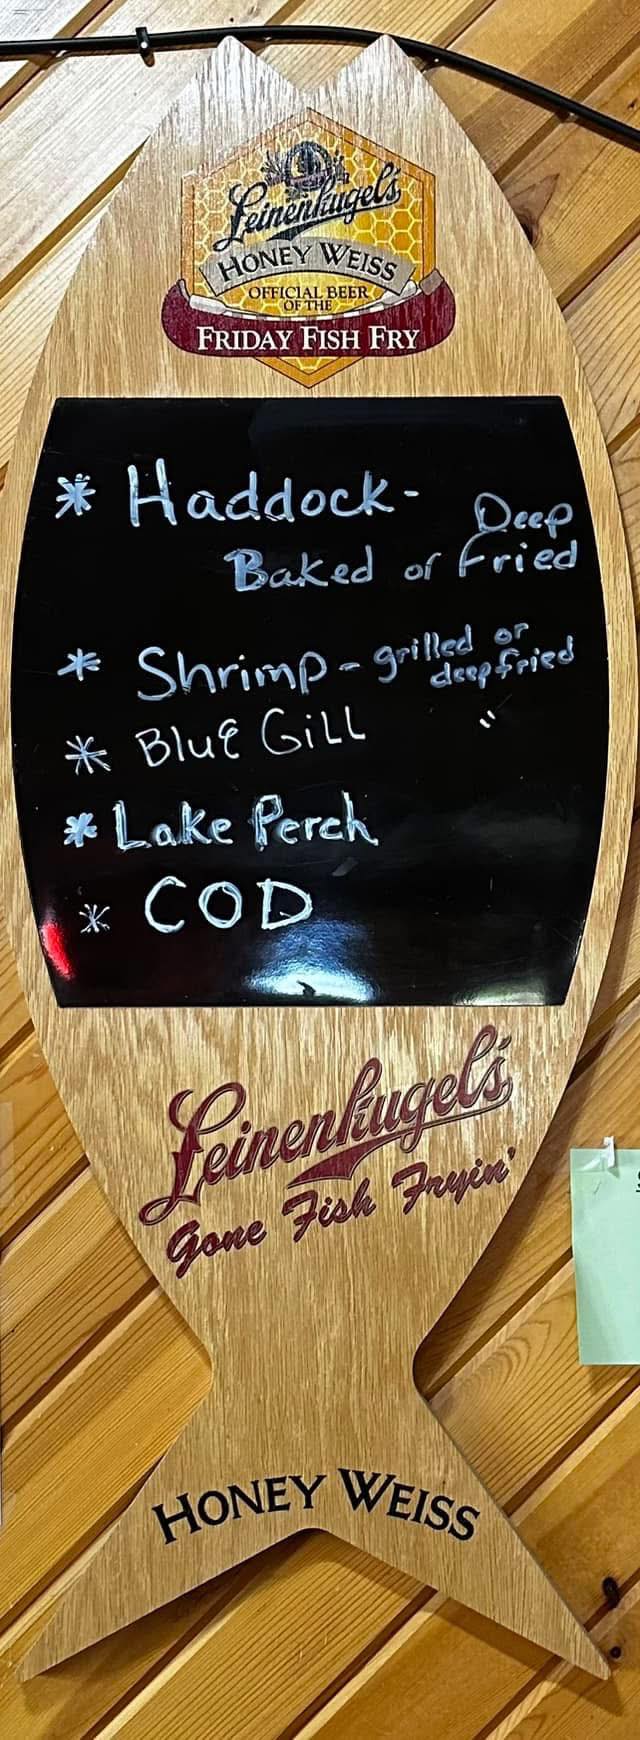 Leinenkugel's
HONEY WEISS
OFFICIAL BEER
OF THE
FRIDAY FISH FRY
* Haddock- Deep
Baked or Fried
* Shrimp - grilled or
deep fried
* Blue Gill "
* Lake Perch
* COD
Leinenkugel's
Gone Fish Fryin'
HONEY WEISS